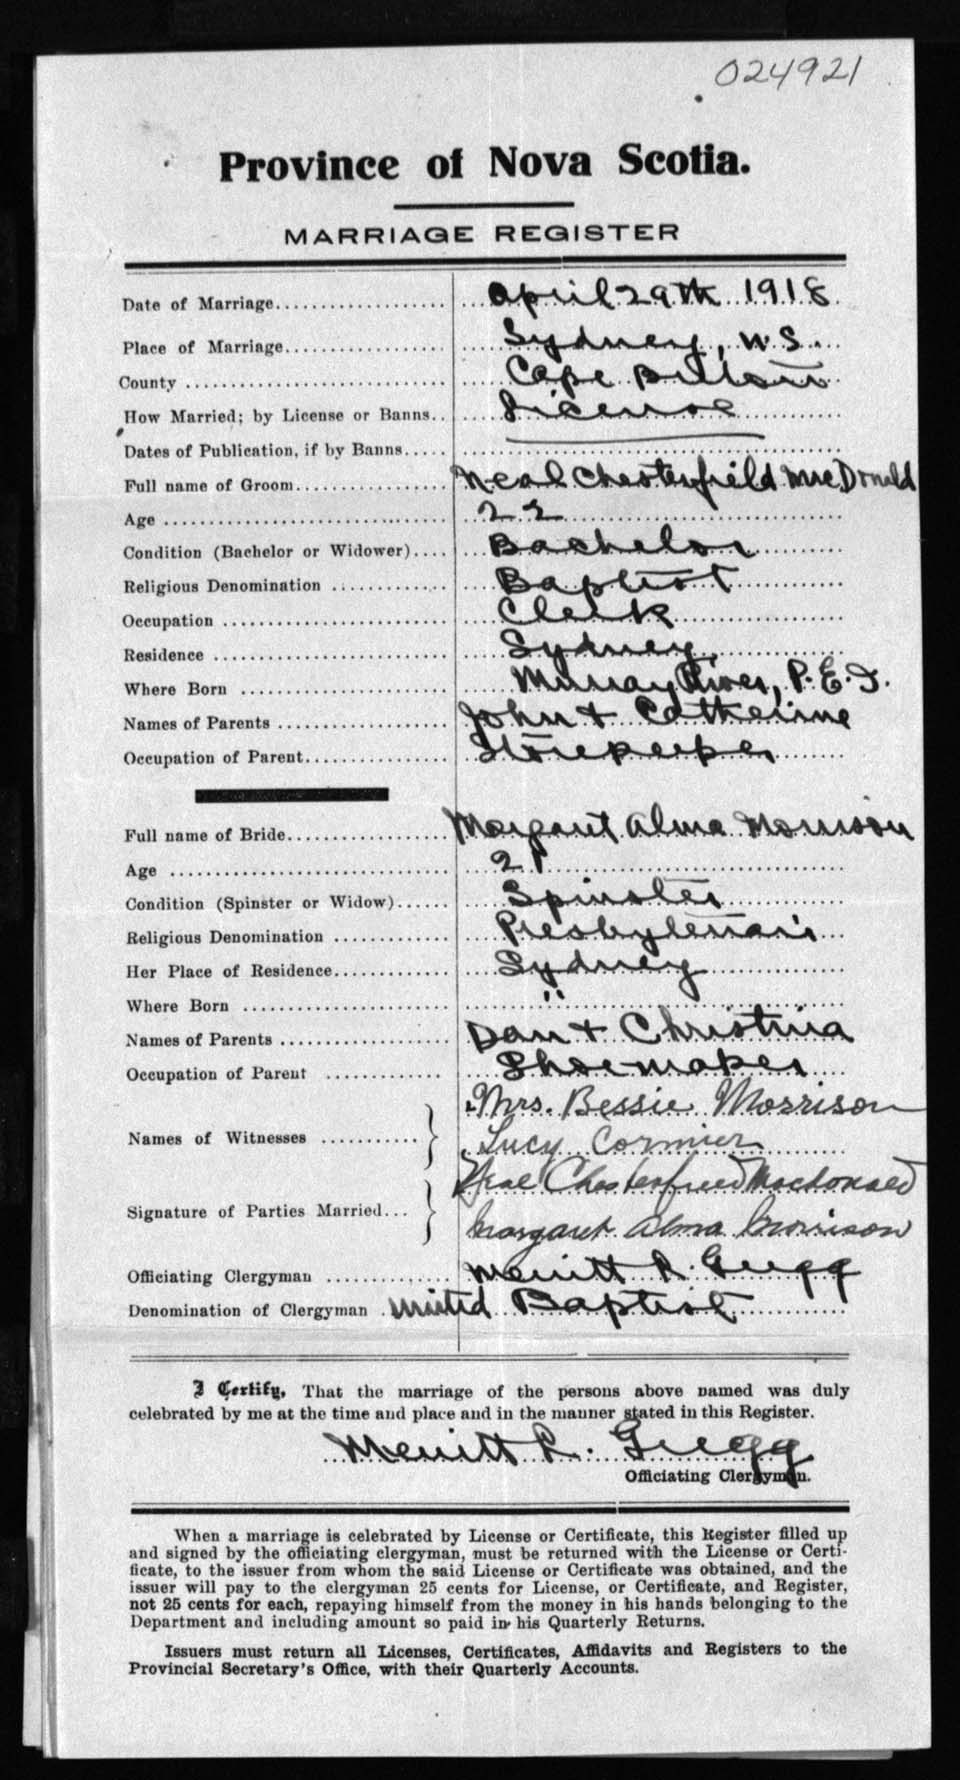 024921
Province of Nova Scotia.
MARRIAGE REGISTER
Date of Marriage.................... April 29th 1918
Place of Marriage.................. Sydney, N.S.
County ............................ Cape Breton
How Married; by License or Banns.. License
Dates of Publication, if by Banns.....
Full name of Groom................. Neal Chesterfield MacDonald
Age ............................... 22
Condition (Bachelor or Widower).... Bachelor
Religious Denomination ............ Baptist
Occupation ........................ Clerk
Residence ......................... Sydney
Where Born ........................ Murray River, P.E.I.
Names of Parents .................. John & Catherine
Occupation of Parent............... Storekeeper
Full name of Bride................. Margaret Alma Morrison
Age ............................... 21
Condition (Spinster or Widow)...... Spinster
Religious Denomination ............ Presbyterian
Her Place of Residence............. Sydney
Where Born ........................ "
Names of Parents .................. Dan & Christina
Occupation of Parent .............. Shoemaker
Names of Witnesses ........... } Mrs. Bessie Morrison
Lucy Cormier
Signature of Parties Married... } Neal Chesterfield Macdonald
Margaret Alma Morrison
Officiating Clergyman ............. Merritt L. Gregg
Denomination of Clergyman United Baptist
I Certify, That the marriage of the persons above named was duly
celebrated by me at the time and place and in the manner stated in this Register.
Merritt L. Gregg
Officiating Clergyman.
When a marriage is celebrated by License or Certificate, this Register filled up
and signed by the officiating clergyman, must be returned with the License or Certi-
ficate, to the issuer from whom the said License or Certificate was obtained, and the
issuer will pay to the clergyman 25 cents for License, or Certificate, and Register,
not 25 cents for each, repaying himself from the money in his hands belonging to the
Department and including amount so paid in his Quarterly Returns.
Issuers must return all Licenses, Certificates, Affidavits and Registers to the
Provincial Secretary's Office, with their Quarterly Accounts.